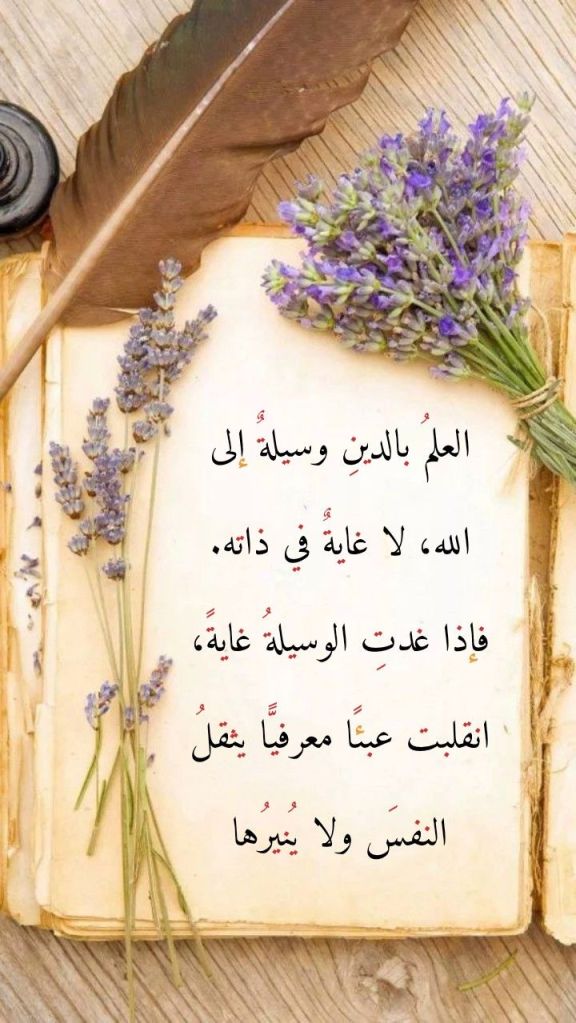 العلمُ بالدينِ وسيلةٌ إلى
الله، لا غايةٌ في ذاته.
فإذا غدتِ الوسيلةُ غايةً،
انقلبت عبئًا معرفيًّا يثقلُ
النفسَ ولا يُنيرُها